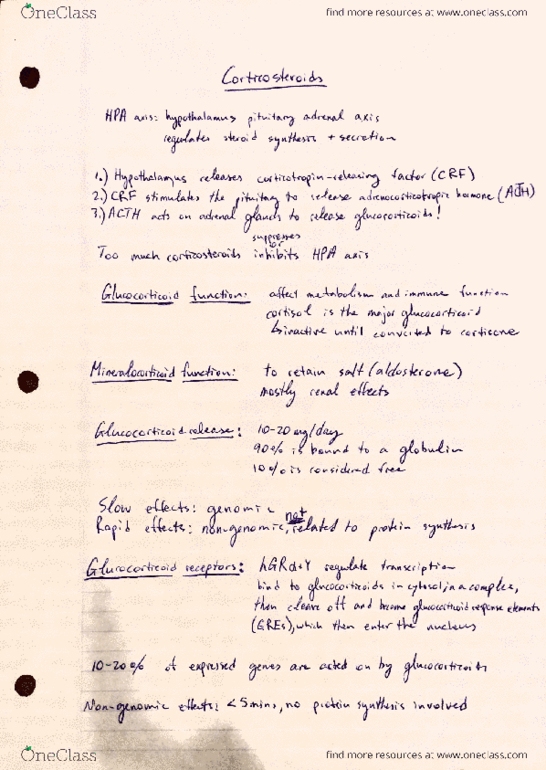 OneClass
find more resources at www.oneclass.com
Corticosteroids
HPA axis: hypothalamus pituitary adrenal axis
regulates steroid synthesis + secretion
1.) Hypothalamus releases corticotropin-releasing factor (CRF)
2.) CRF stimulates the pituitary to release adrenocorticotropic hormone (ACTH)
3.) ACTH acts on adrenal glands to release glucocorticoids!
suppresses
or
Too much corticosteroids inhibits HPA axis
Glucocorticoid function: affect metabolism and immune function
cortisol is the major glucocorticoid
↳inactive until converted to cortisone
Mineralocorticoid function: to retain salt (aldosterone)
mostly renal effects
Glucocorticoid release: 10-20 mg/day
90% is bound to a globulin
10% is considered free
Slow effects: genomic
not
Rapid effects: non-genomic, related to protein synthesis
Glucocorticoid receptors: hGRα+γ regulate transcription
bind to glucocorticoids in cytosol, in a complex,
then cleave off and become glucocorticoid response elements
(GREs), which then enter the nucleus
10-20% of expressed genes are acted on by glucocorticoids
Non-genomic effects: <5mins, no protein synthesis involved
OneClass
find more resources at www.oneclass.com